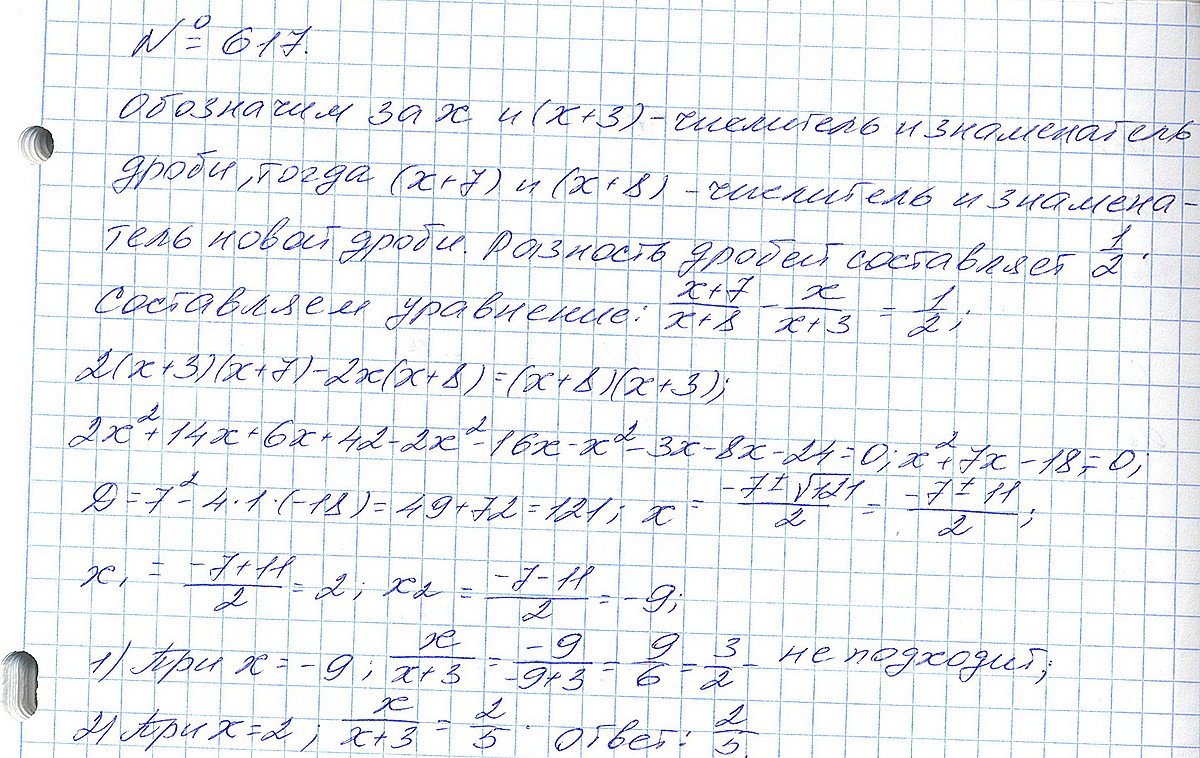 № 617.
Обозначим за x и (x+3) - числитель и знаменатель
дроби, тогда (x+7) и (x+8) - числитель и знамена-
тель новой дроби. Разность дробей составляет 1/2.
Составляем уравнение: (x+7)/(x+8) - x/(x+3) = 1/2;
2(x+3)(x+7)-2x(x+8)=(x+8)(x+3);
2x²+14x+6x+42-2x²-16x-x²-3x-8x-24=0; x²+7x-18=0;
D=7²-4·1·(-18)=49+72=121; x = (-7±√121)/2 = (-7±11)/2;
x₁ = (-7+11)/2 = 2; x₂ = (-7-11)/2 = -9;
1) При x=-9; x/(x+3) = -9/(-9+3) = 9/6 = 3/2 - не подходит;
2) При x=2; x/(x+3) = 2/5. Ответ: 2/5.